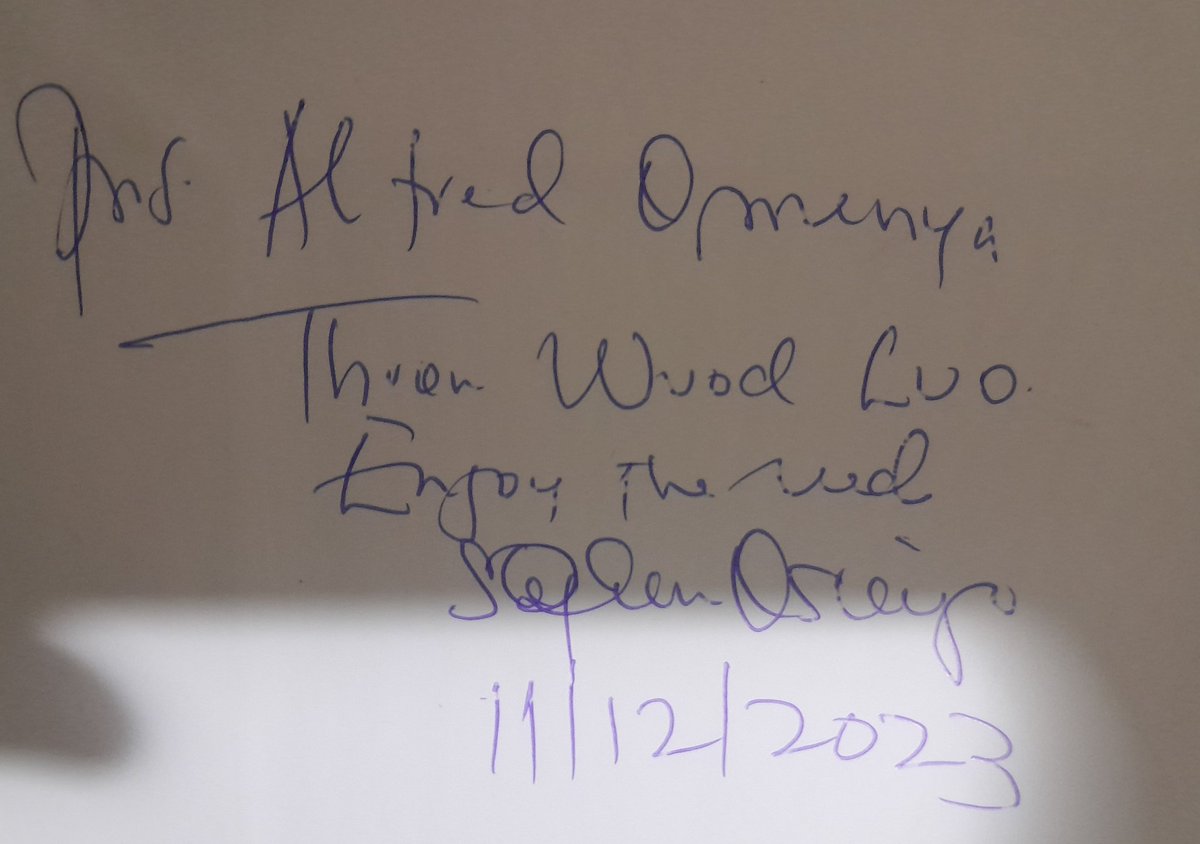 Prof. Alfred Omenya
Thuon Wuod Luo.
Enjoy the read
Osieyo
11/12/2023